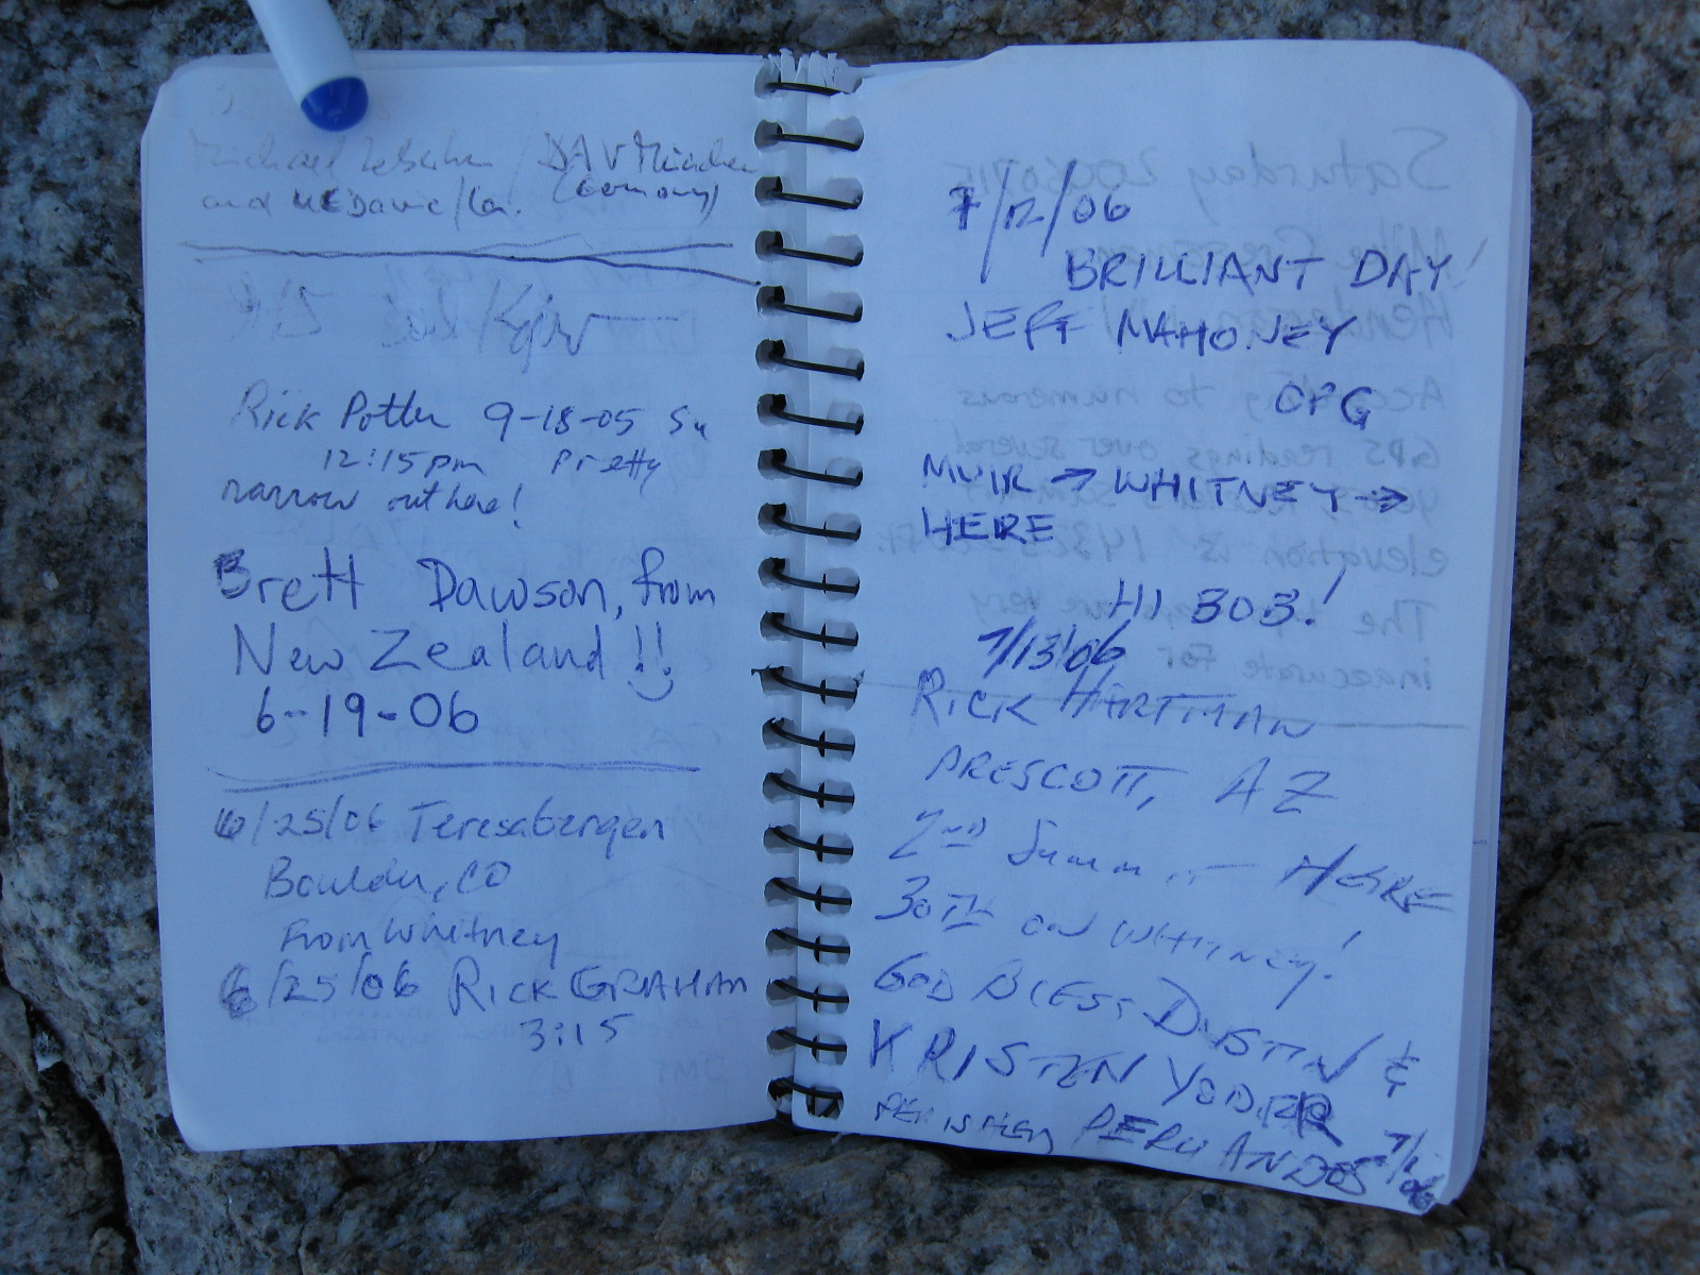 Michael / DAV München
and (Germany)
Rick Potter 9-18-05 Su
12:15pm Pretty
narrow out here!
Brett Dawson, from
New Zealand!!
6-19-06
6/25/06 Teresa Bergen
Boulder, CO
From Whitney
6/25/06 RICK GRAHAM
3:15
7/12/06
BRILLIANT DAY!
JEFF MAHONEY
OPG
MUIR → WHITNEY →
HERE
HI BOB!
7/13/06
RICK HARTMAN
PRESCOTT, AZ
2ND Summit HERE
30TH ON WHITNEY!
GOD BLESS DUSTIN &
KRISTEN YODER
PERISHED PERU ANDES